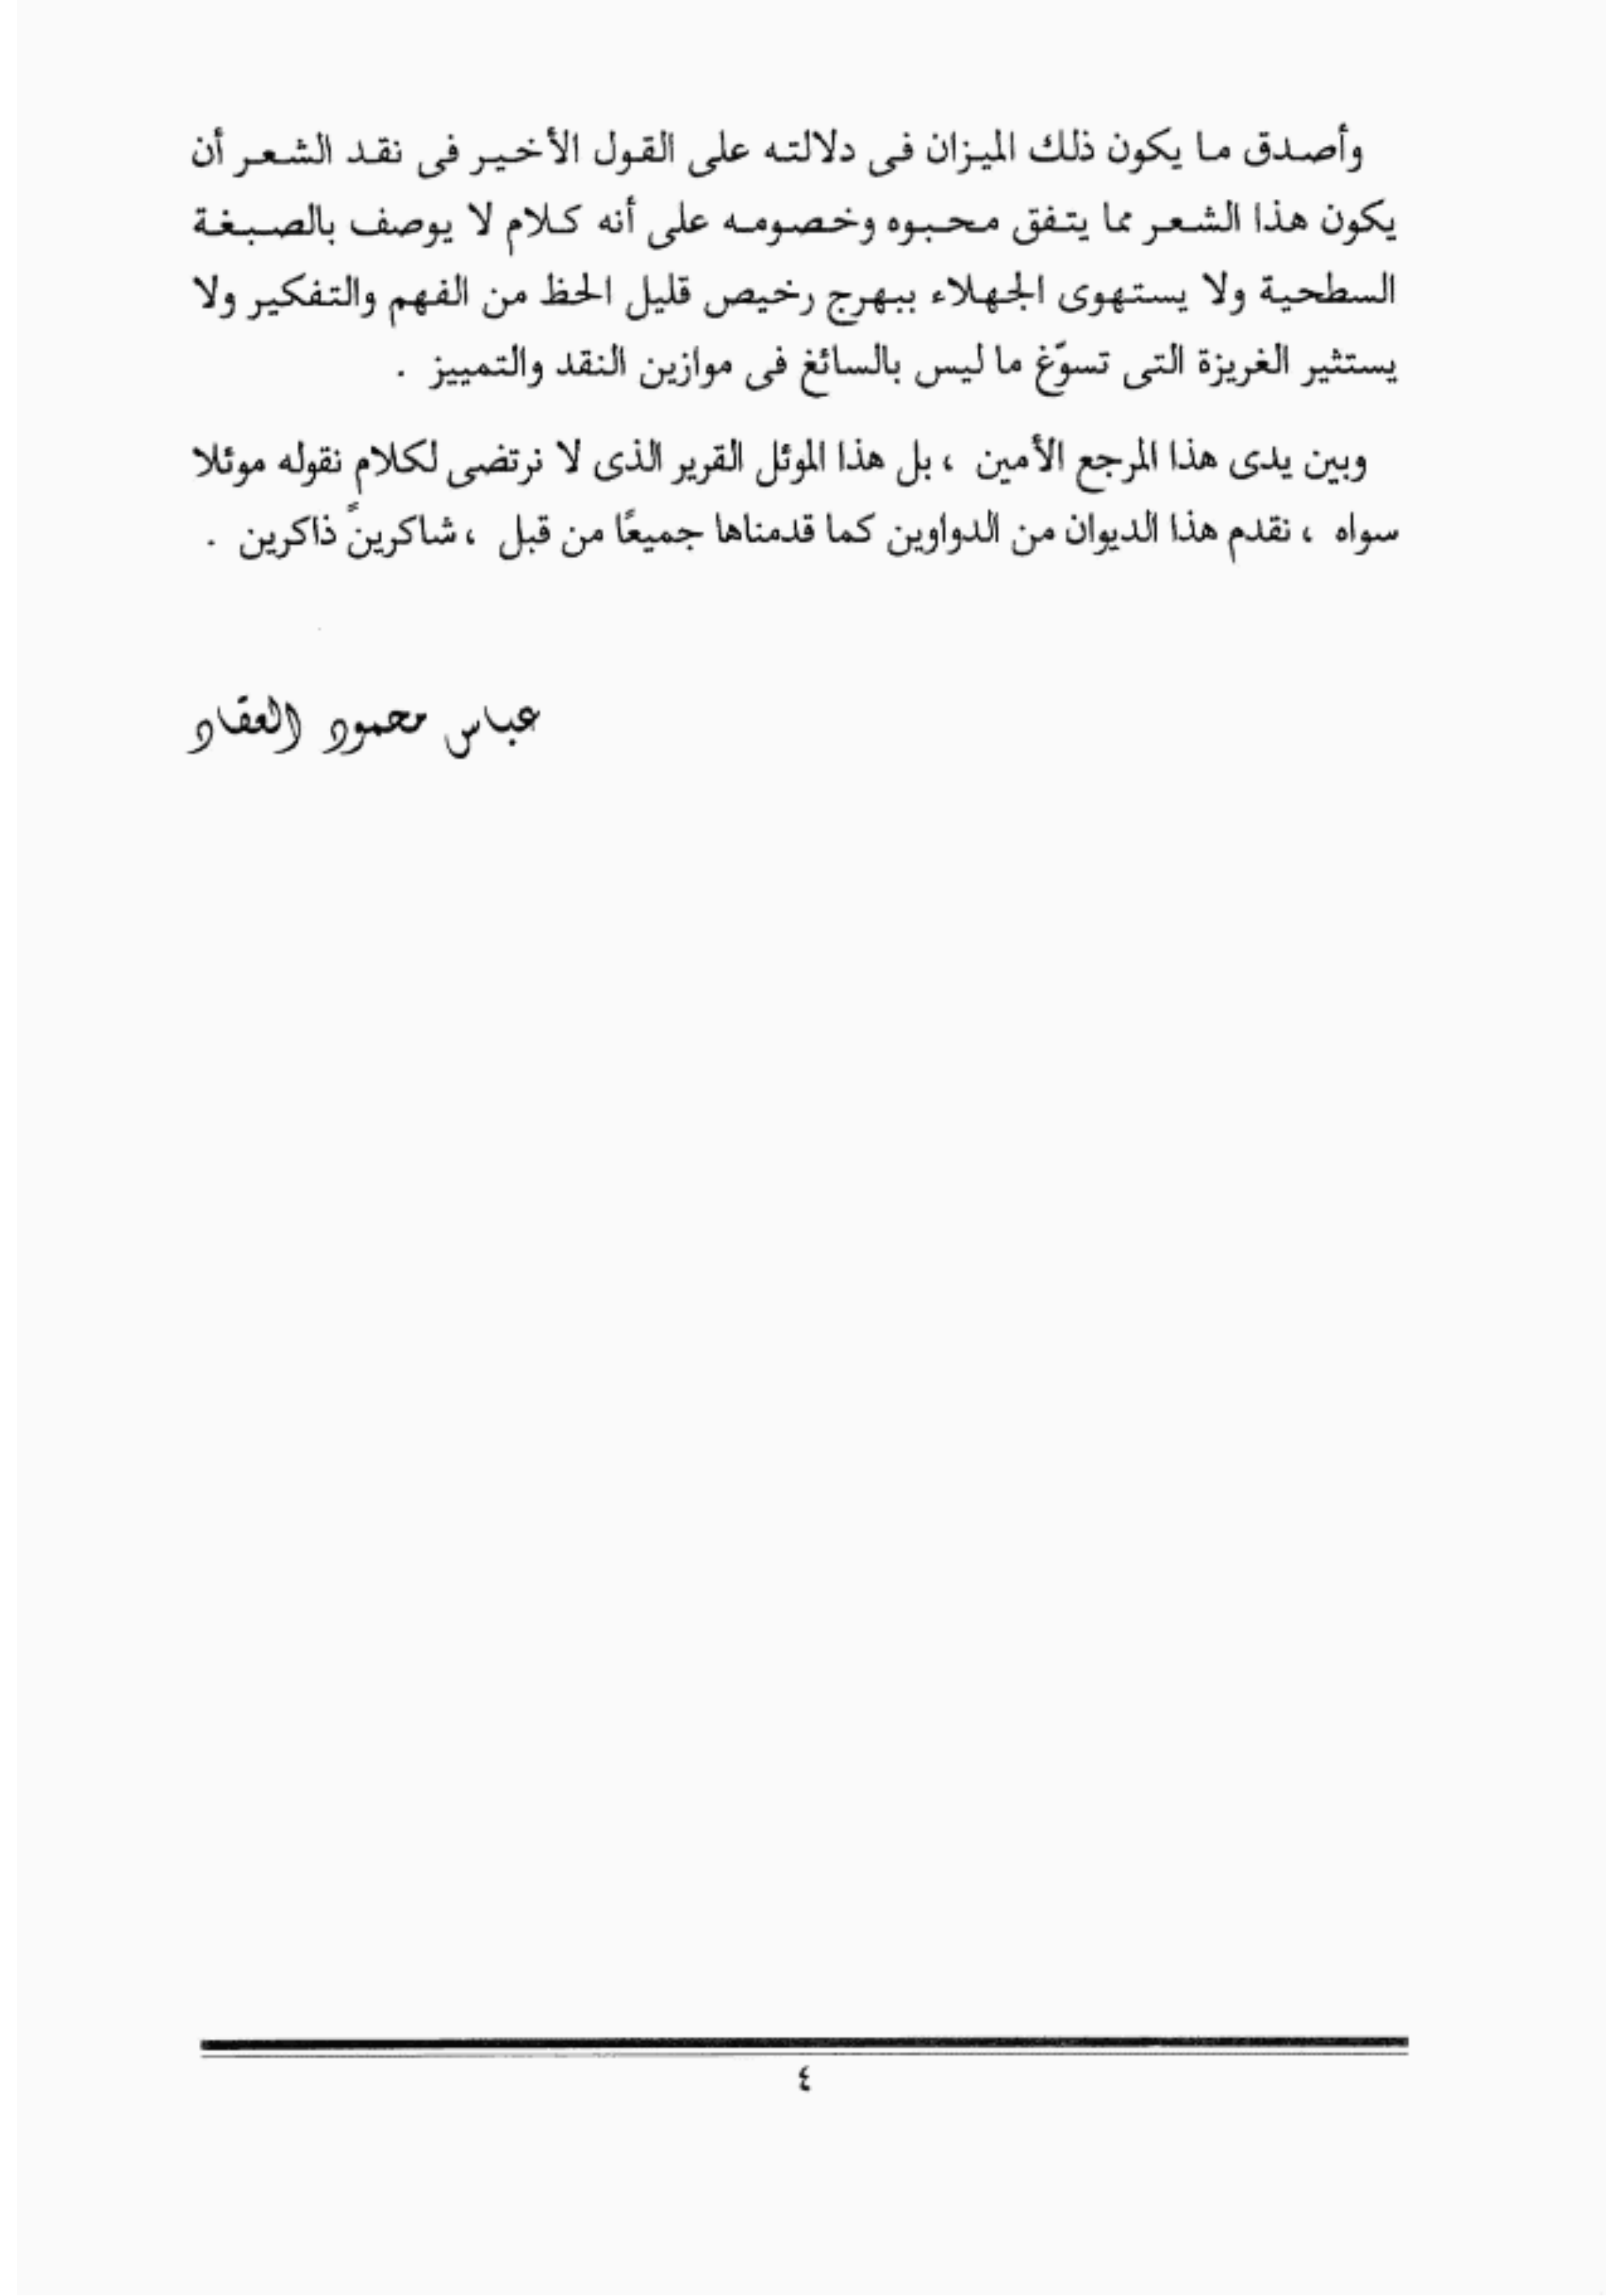 وأصدق ما يكون ذلك الميزان فى دلالته على القول الأخير فى نقد الشعر أن
يكون هذا الشعر مما يتفق محبوه وخصومه على أنه كلام لا يوصف بالصبغة
السطحية ولا يستهوى الجهلاء ببهرج رخيص قليل الحظ من الفهم والتفكير ولا
يستثير الغريزة التى تسوّغ ما ليس بالسائغ فى موازين النقد والتمييز .
وبين يدى هذا المرجع الأمين ، بل هذا الموئل القرير الذى لا نرتضى لكلام نقوله موئلا
سواه ، نقدم هذا الديوان من الدواوين كما قدمناها جميعًا من قبل ، شاكرينً ذاكرين .
عباس محمود العقاد
٤